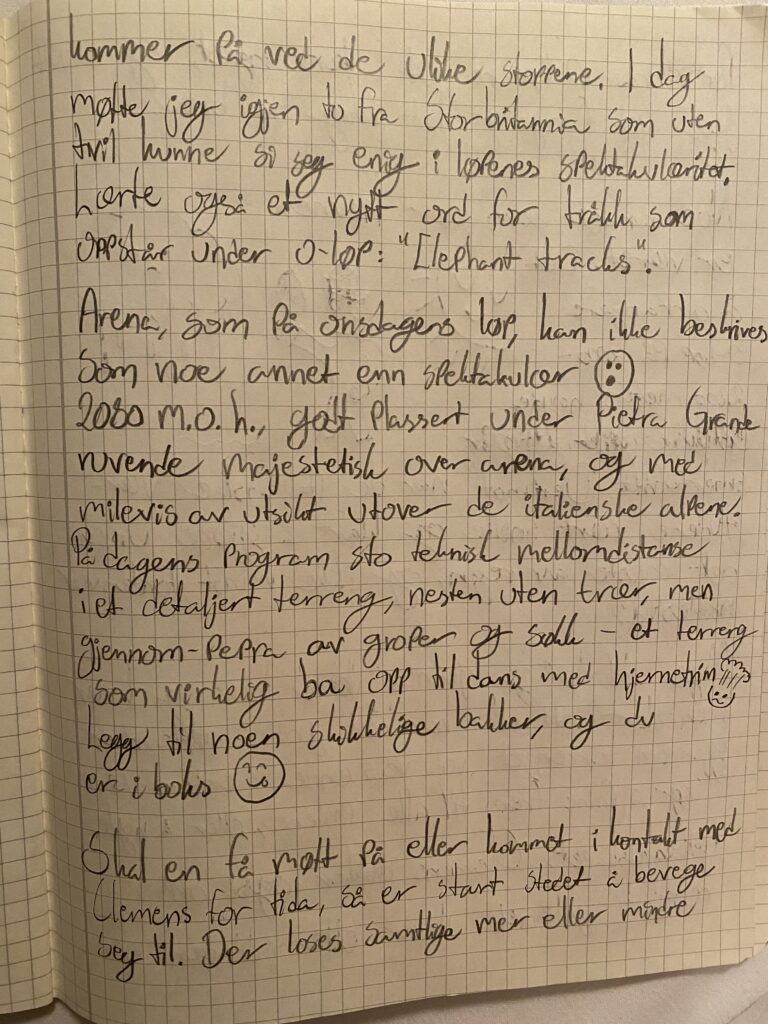 kommer på ved de ulike stoppene. I dag
møtte jeg igjen to fra Storbritannia som uten
tvil kunne si seg enig i løpenes spektakularitet.
Lærte også et nytt ord for tråkk som
oppstår under o-løp: "Elephant tracks".
Arena, som på onsdagens løp, kan ikke beskrives
som noe annet enn spektakulær
2080 m.o.h., godt plassert under Pietra Grande
ruvende majestetisk over arena, og med
milevis av utsikt utover de italienske alpene.
På dagens program sto teknisk mellomdistanse
i et detaljert terreng, nesten uten trær, men
gjennom-pepra av groper og søkk – et terreng
som virkelig ba opp til dans med hjernetrim
Legg til noen skikkelige bakker, og du
er i boks
Skal en få møtt på eller kommet i kontakt med
Clemens for tida, så er start stedet å bevege
seg til. Der loses samtlige mer eller mindre